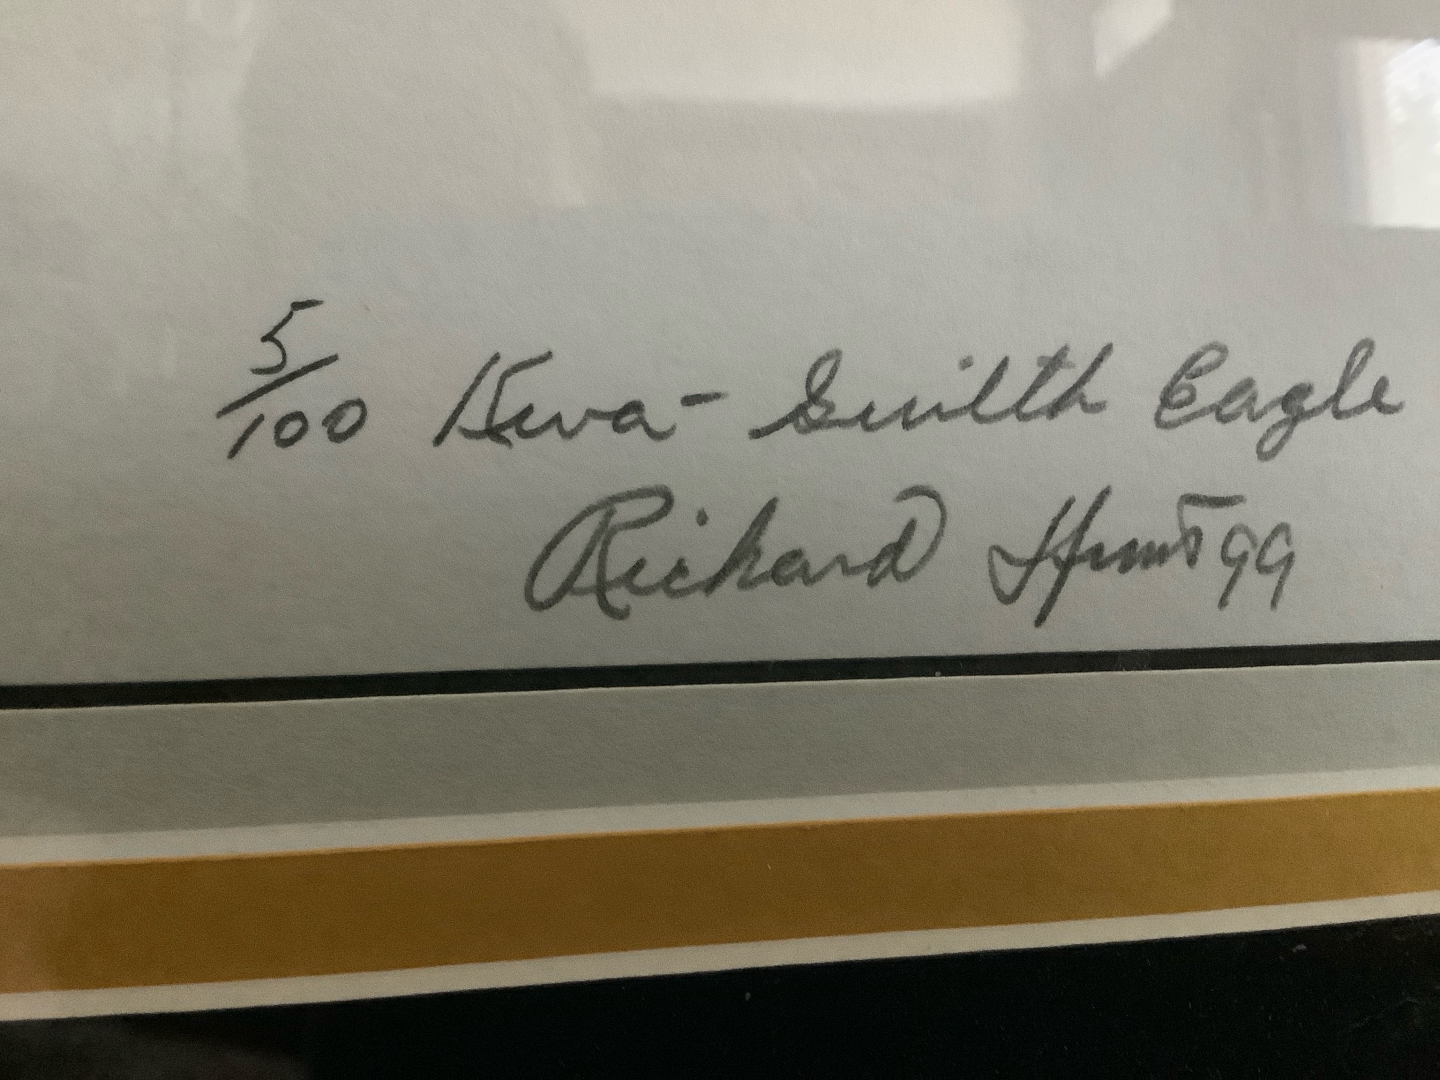 5/100 Kwa-Gwilth Eagle
Richard Hunt 99